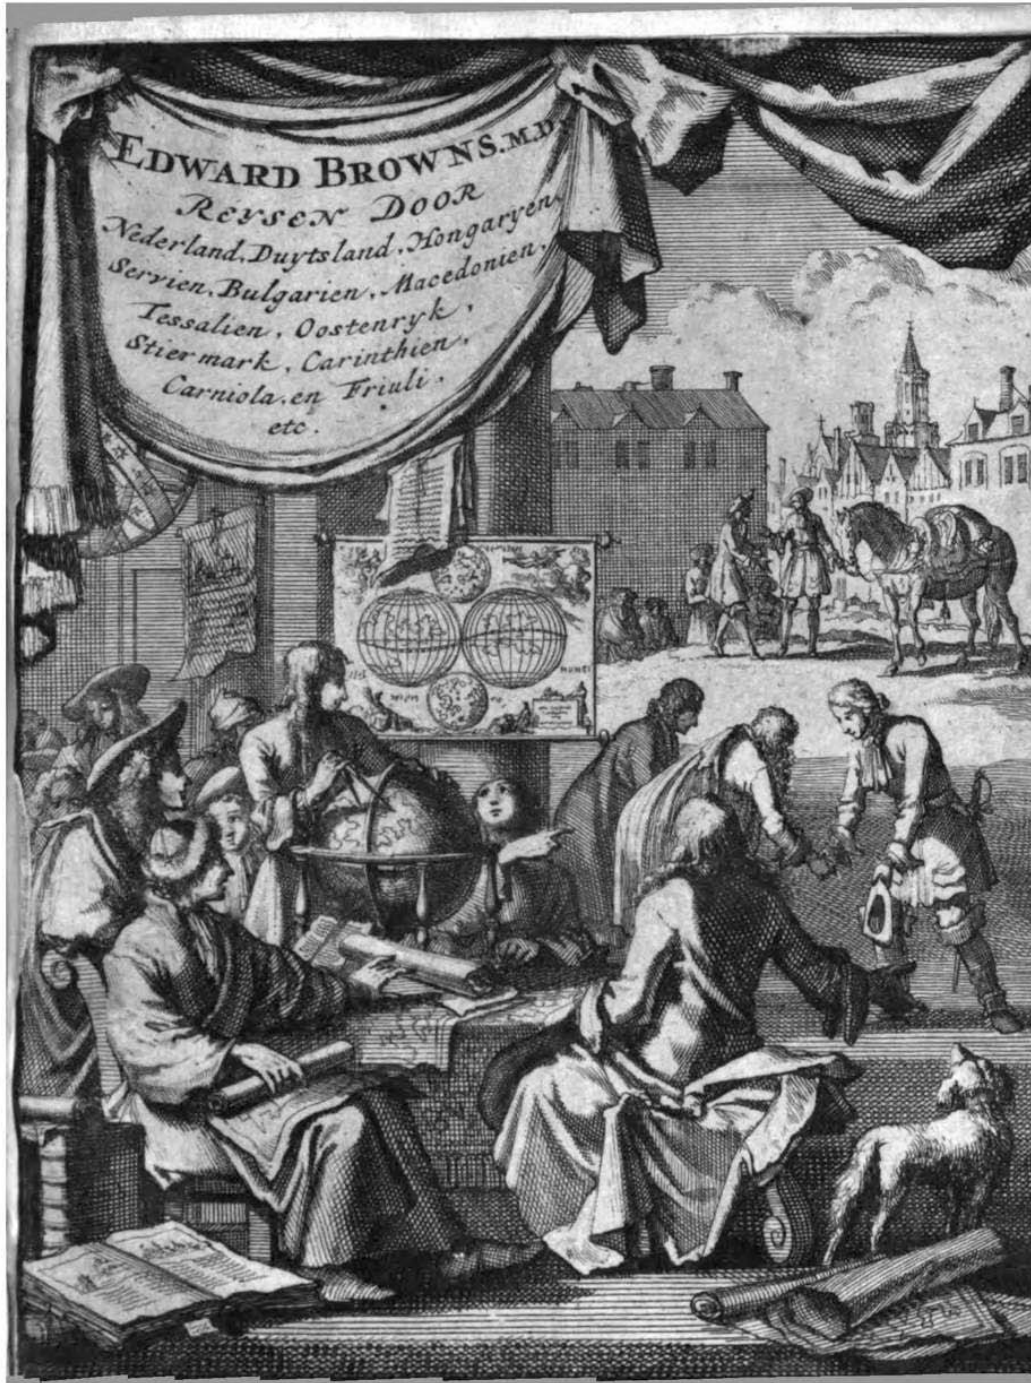 EDWARD BROWNS. M.D.
REYSEN DOOR
Nederland, Duytsland, Hongaryen,
Servien, Bulgarien, Macedonien,
Tessalien, Oostenryk,
Stiermark, Carinthien,
Carniola, en Friuli,
etc.